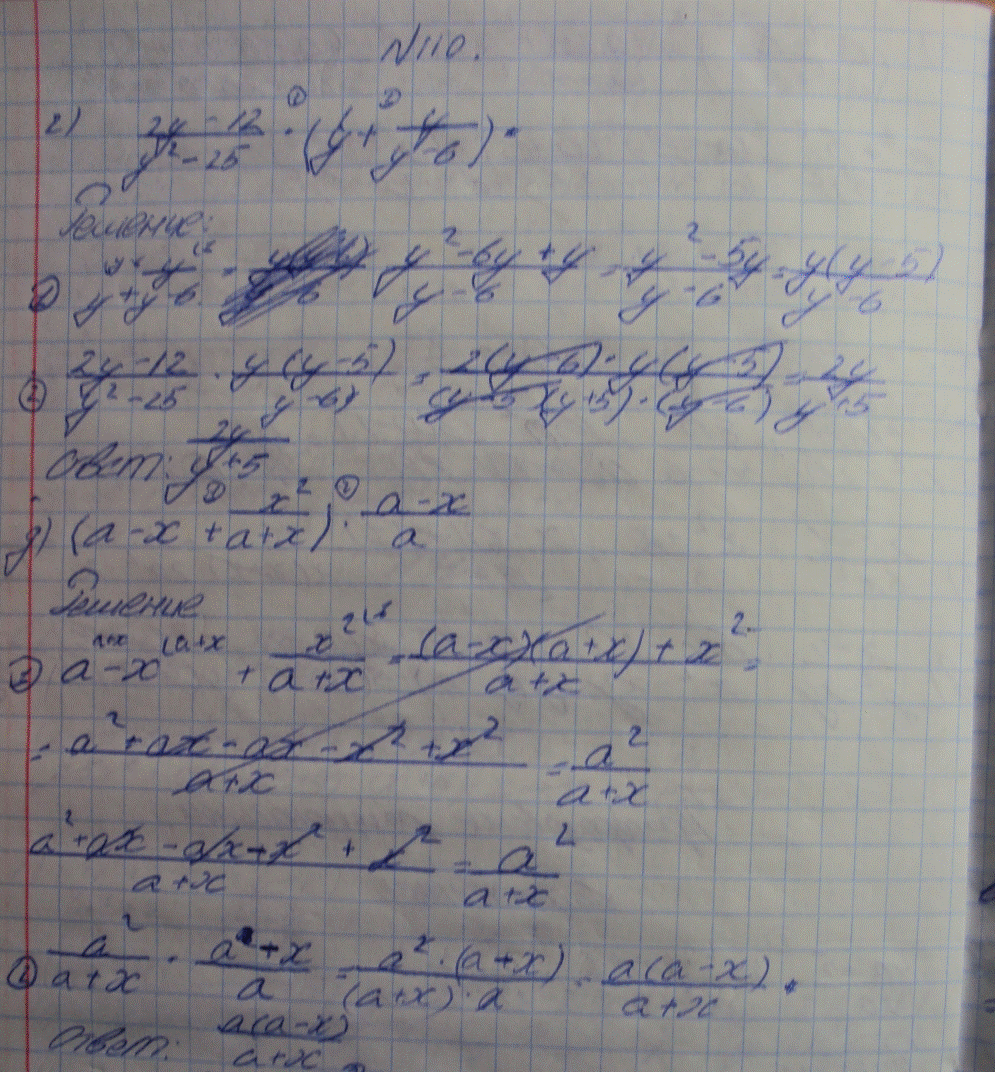 №110.
г) (2y-12)/(y²-25) · (y + y/(y-6))
Решение:
① y + y/(y-6) = (y²-6y+y)/(y-6) = (y²-5y)/(y-6) = y(y-5)/(y-6)
② (2y-12)/(y²-25) · y(y-5)/(y-6) = 2(y-6)·y(y-5)/((y-5)(y+5)·(y-6)) = 2y/(y+5)
Ответ: 2y/(y+5)
д) (a-x + x²/(a+x)) · (a-x)/a
Решение
a-x + x²/(a+x) = ((a-x)(a+x)+x²)/(a+x) =
= (a²+ax-ax-x²+x²)/(a+x) = a²/(a+x)
(a²+ax-ax-x²+x²)/(a+x) = a²/(a+x)
② a²/(a+x) · (a+x)/a = a²·(a+x)/((a+x)·a) = a(a-x)/(a+x).
Ответ: a(a-x)/(a+x)